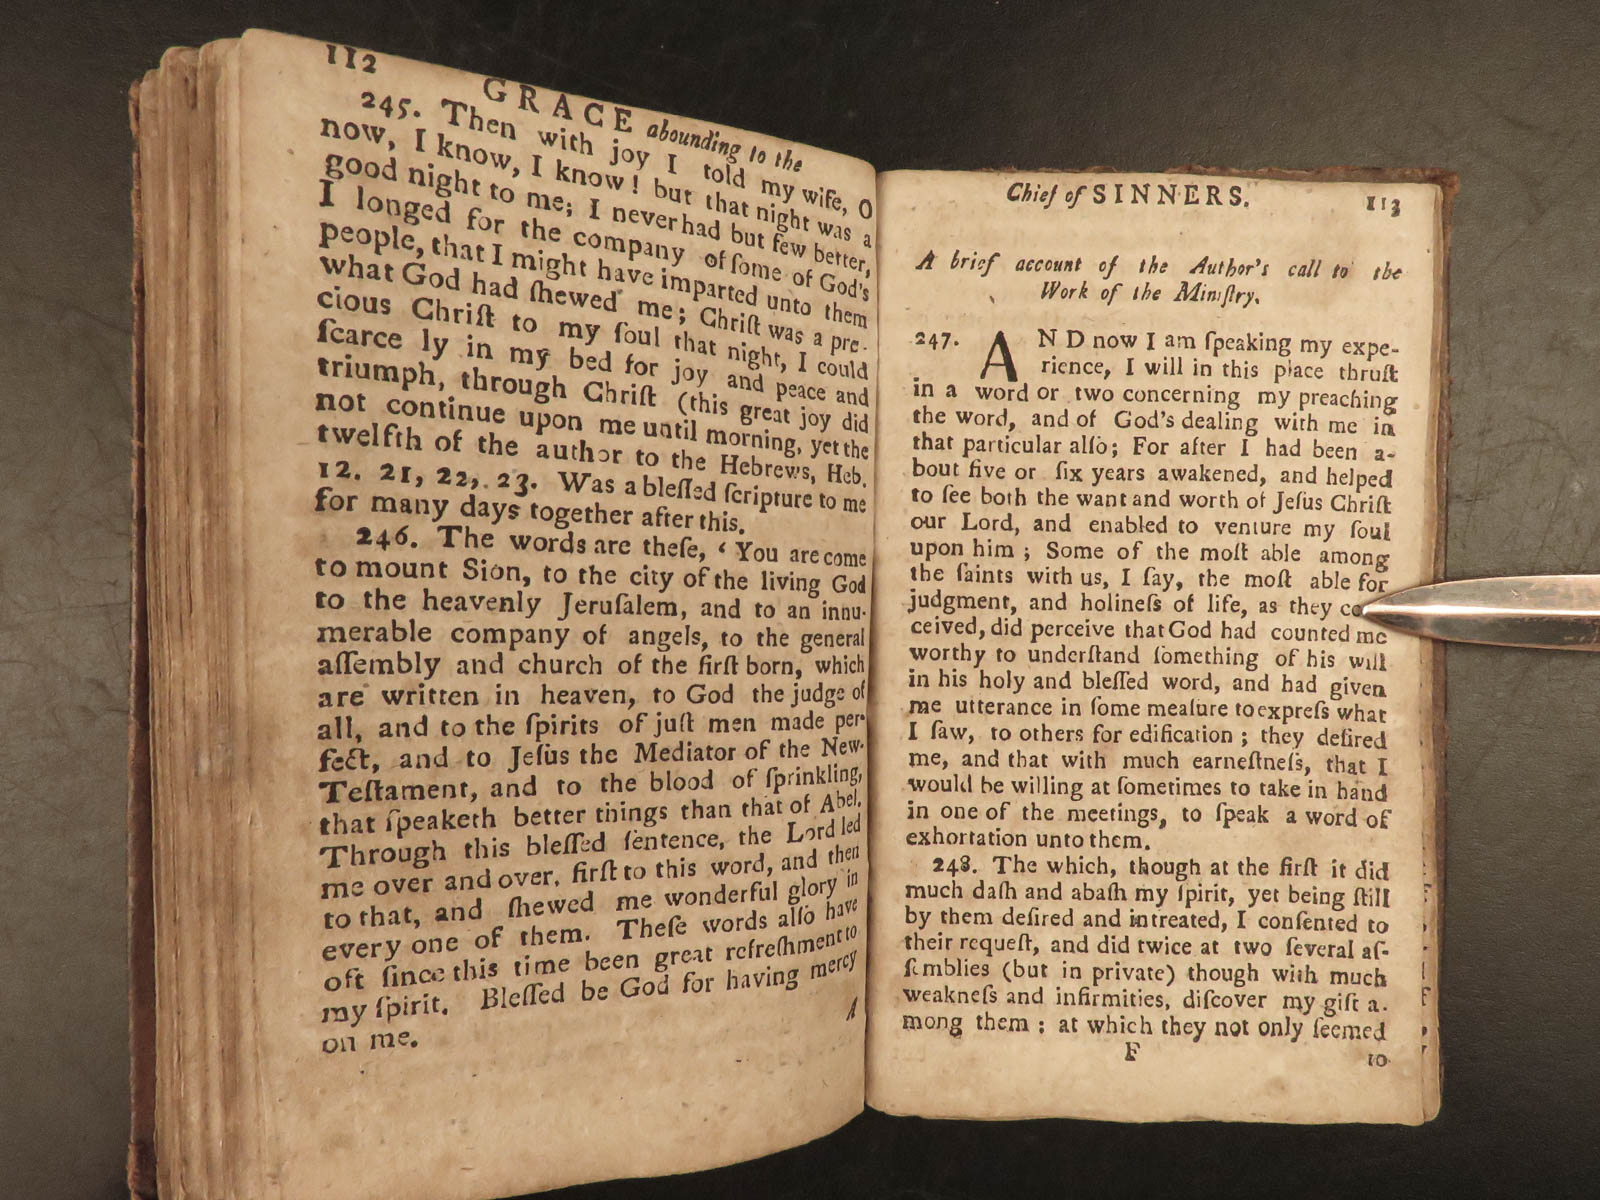 112
GRACE abounding to the
245. Then with joy I told my wife, O
now, I know, I know! but that night was a
good night to me; I never had but few better,
I longed for the company of ſome of God's
people, that I might have imparted unto them
what God had ſhewed me; Chriſt was a pre-
cious Chriſt to my ſoul that night, I could
ſcarce ly in my bed for joy and peace and
triumph, through Chriſt (this great joy did
not continue upon me until morning, yet the
twelfth of the author to the Hebrews, Heb.
12. 21, 22, 23. Was a bleſſed ſcripture to me
for many days together after this.
246. The words are theſe, ‘ You are come
to mount Sion, to the city of the living God
to the heavenly Jeruſalem, and to an innu-
merable company of angels, to the general
aſſembly and church of the firſt born, which
are written in heaven, to God the judge of
all, and to the ſpirits of juſt men made per-
fect, and to Jeſus the Mediator of the New-
Teſtament, and to the blood of ſprinkling,
that ſpeaketh better things than that of Abel.
Through this bleſſed ſentence, the Lord led
me over and over, firſt to this word, and then
to that, and ſhewed me wonderful glory in
every one of them. Theſe words alſo have
oft ſince this time been great refreſhment to
my ſpirit. Bleſſed be God for having mercy
on me.
A
Chief of SINNERS. 113
A brief account of the Author's call to the
Work of the Miniſtry.
247. AND now I am ſpeaking my expe-
rience, I will in this place thruſt
in a word or two concerning my preaching
the word, and of God's dealing with me in
that particular alſo; For after I had been a-
bout five or ſix years awakened, and helped
to ſee both the want and worth of Jeſus Chriſt
our Lord, and enabled to venture my ſoul
upon him ; Some of the moſt able among
the ſaints with us, I ſay, the moſt able for
judgment, and holineſs of life, as they
ceived, did perceive that God had counted me
worthy to underſtand ſomething of his will
in his holy and bleſſed word, and had given
me utterance in ſome meaſure to expreſs what
I ſaw, to others for edification ; they deſired
me, and that with much earneſtneſs, that I
would be willing at ſometimes to take in hand
in one of the meetings, to ſpeak a word of
exhortation unto them.
248. The which, though at the firſt it did
much daſh and abaſh my ſpirit, yet being ſtill
by them deſired and intreated, I conſented to
their requeſt, and did twice at two ſeveral aſ-
ſemblies (but in private) though with much
weakneſs and infirmities, diſcover my gift a-
mong them ; at which they not only ſeemed
F
to